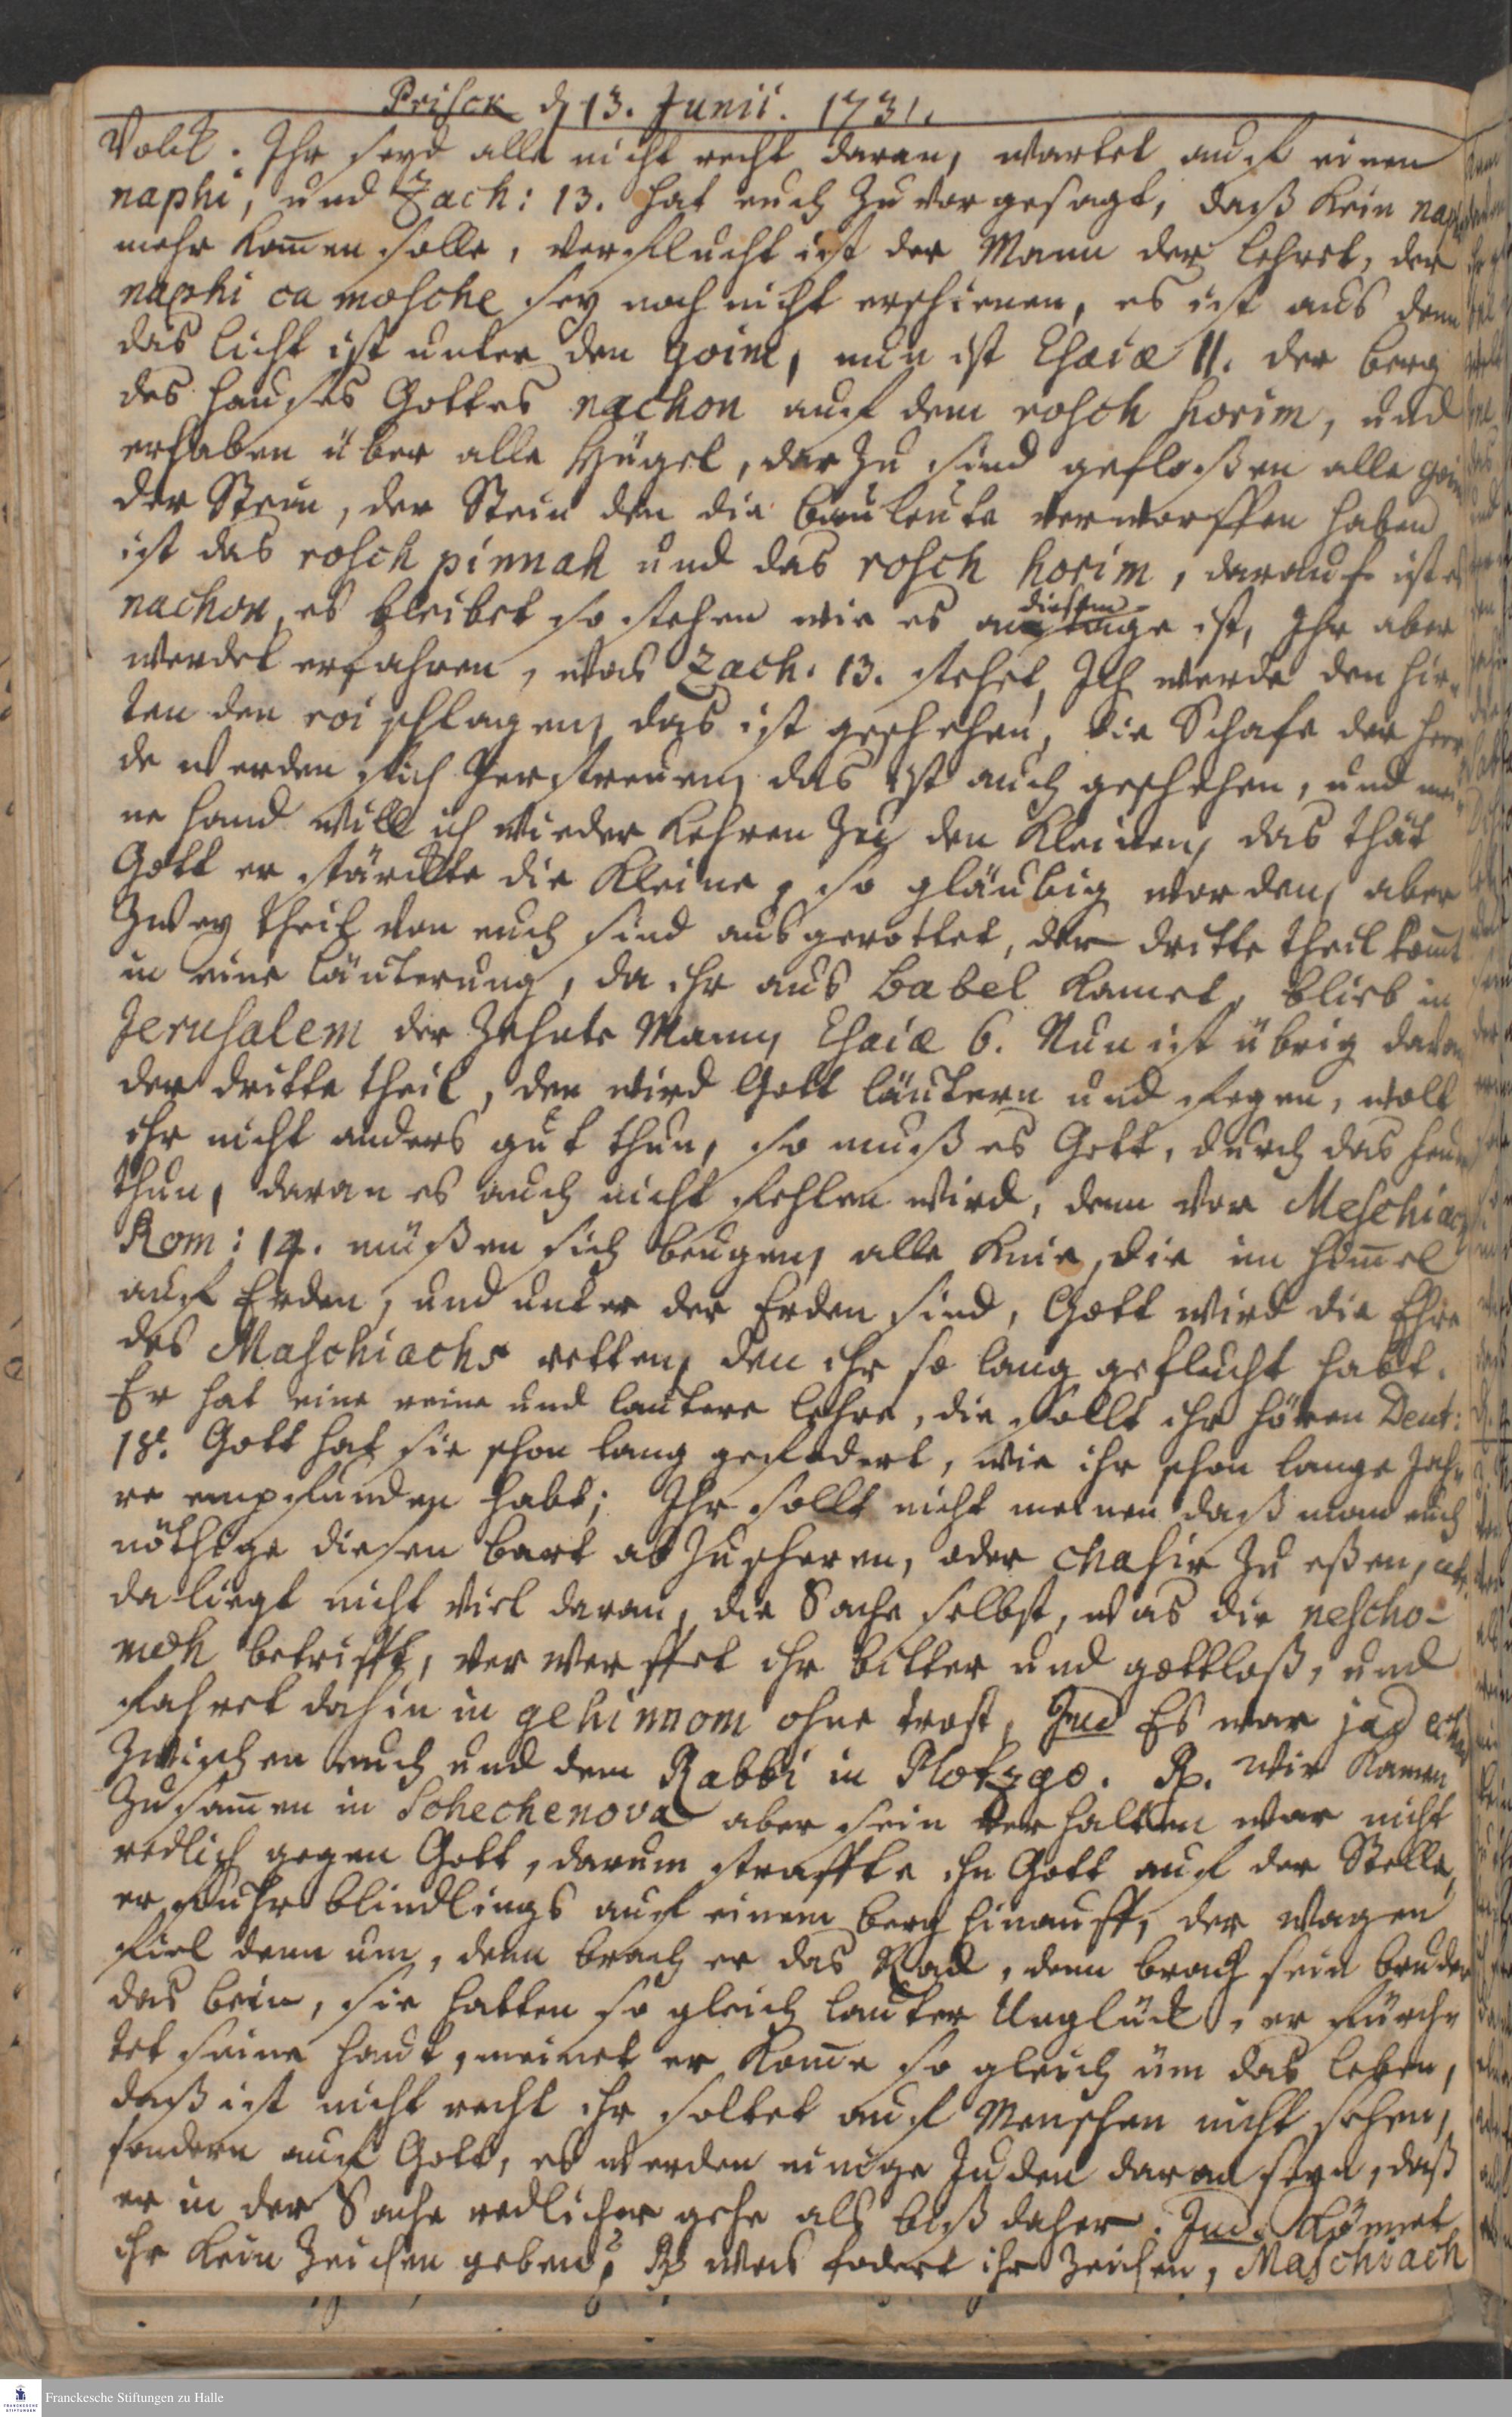 Prisck d 13. Junii. 1731.
Volck. Ihr seyd alle nicht recht daran, wartet auf einen
naphi, und Zach: 13. hat euch zuvor gesagt, daß kein naphi
mehr kom̄en solle, verflucht ist der Mann der lehret, der
naphi ca mosche sey noch nicht erschienen, es ist aus denn
das licht ist unter den goim, nun ist Esaiæ II. der berg
des hauses Gottes nachon auf dem rosch horim, und
erhaben über alle Hügel, darzu sind gefloßen alle goim
der Stein, der Stein den die bauleute verworffen haben
ist das rosch pinnah und das rosch horim, darauf ist es
nachon, es bleibet so stehen wie es an diesem tage ist, Ihr aber
werdet erfahren, was Zach. 13. stehet, Ich werde den hir-
ten den roi schlagen, das ist geschehen, die Schafe der heer
de werden sich zerstreuen, das ist auch geschehen, und mei-
ne hand will ich wieder kehren zu den kleinen, das thät
Gott er stärckte die kleine, so gläubig worden, aber
zwey theil von euch sind ausgerottet, der dritte theil kom̄t
in eine läuterung, da ihr aus Babel kamet, blieb in
Jerusalem der zehnte Mann, Esaiæ 6. Nun ist übrig davon
der dritte theil, den wird Gott läutern und fegen, wolt
ihr nicht anders gut thun, so muß es Gott, durch das feuer
thun, daran es auch nicht fehlen wird, denn vor Meschiach
Rom: 14. müßen sich beugen, alle Knie, die im him̄el
auf Erden, und unter der Erden sind, Gott wird die Ehre
des Maschiachs retten, den ihr so lang geflucht habt.
Er hat eine reine und lautere lehre, die sollt ihr hören Deut:
18. Gott hat sie schon lang gefodert, wie ihr schon lange Jah-
re empfunden habt; Ihr sollt nicht meinen daß man euch
nöthige diesen bart abzuscheren, oder chasir zu eßen,
da liegt nicht viel daran, die Sache selbst, was die nescho-
moh betrifft, verwerffet ihr bitter und gottloß, und
fahret dahin in gehinnom ohne trost, Jud Es war jad
zwischen euch und dem Rabbi in Plotzgo. Rp. wir kamen
zusam̄en in Sohechenova aber sein verhalten war nicht
redlich gegen Gott, darum straffte ihn Gott auf der Stelle,
er fuhr blindlings auf einem berg hinauff, der wagen
fiel denn um, denn brach er das Rad, denn brach sein bruder
das bein, sie hatten so gleich lauter Unglück, er fürch-
tet seine haut, meinet er kom̄e so gleich üm das leben,
daß ist nicht recht ihr soltet auf Menschen nicht sehen,
sondern auf Gott, es werden einige Juden daran seyn, daß
er in der Sache redlicher gehe als biß daher. Jud. Könnet
ihr kein Zeichen geben? Rp was fodert ihr Zeichen, Maschiach
Franckesche Stiftungen zu Halle